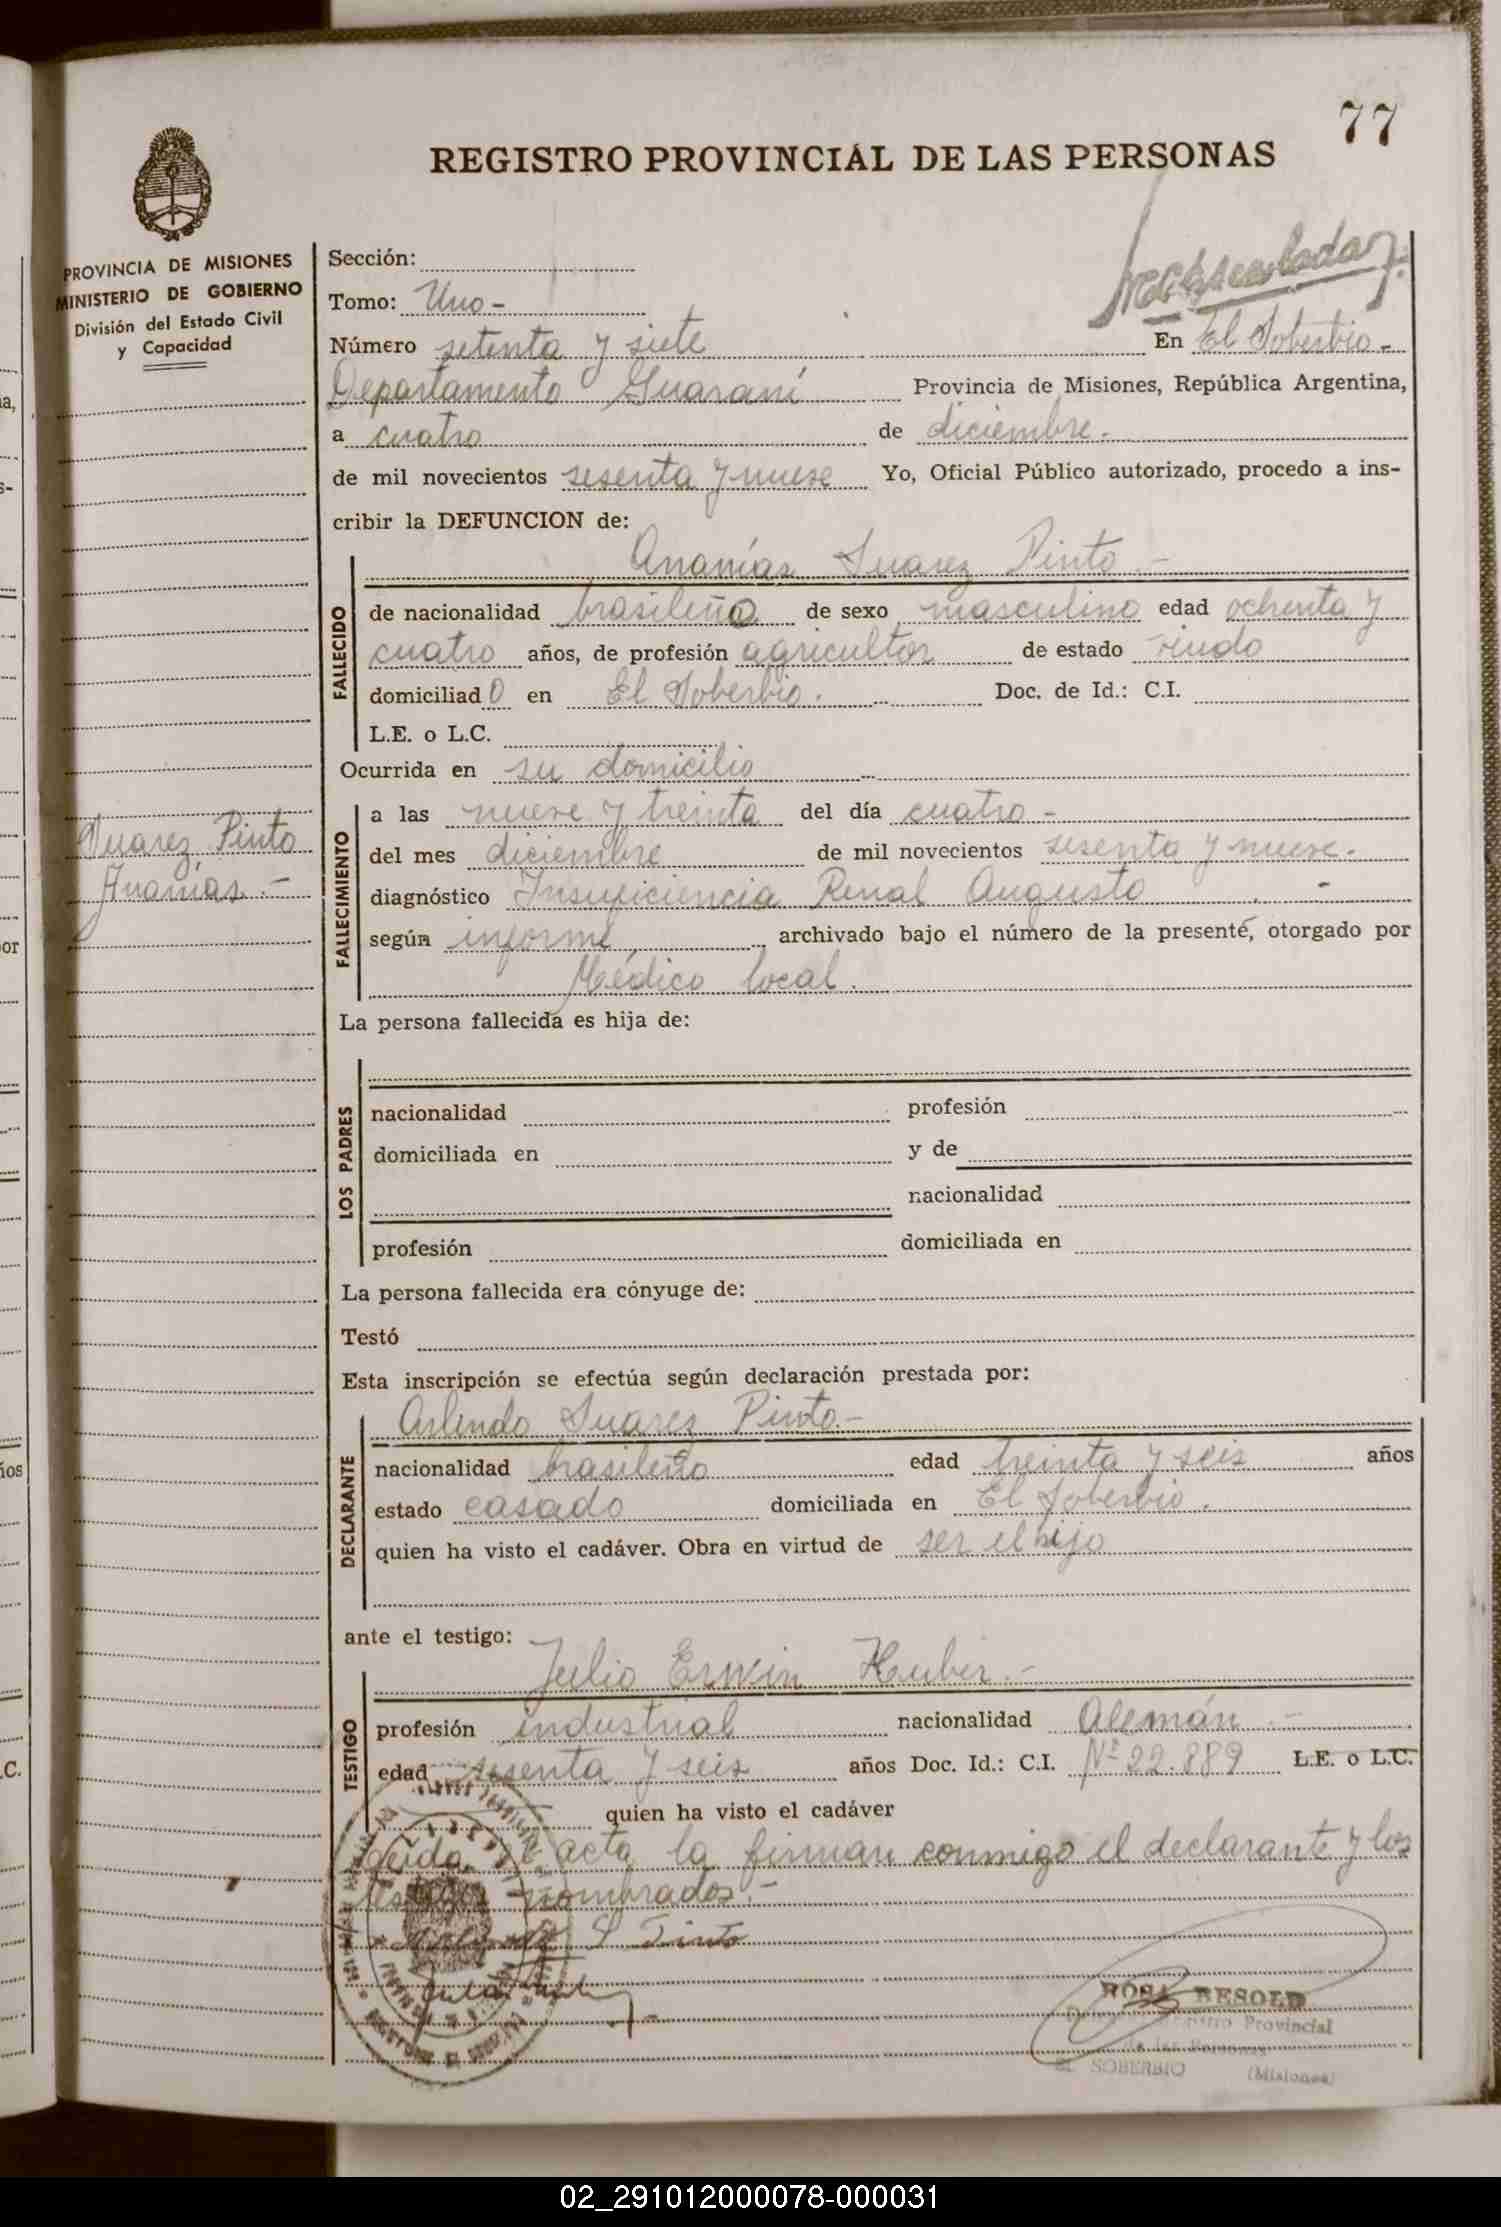 77
REGISTRO PROVINCIAL DE LAS PERSONAS
PROVINCIA DE MISIONES
MINISTERIO DE GOBIERNO
División del Estado Civil
y Capacidad
Sección:
Tomo: Uno-
Número setenta y siete En El Soberbio-
Departamento Guaraní Provincia de Misiones, República Argentina,
a cuatro de diciembre.
de mil novecientos sesenta y nueve Yo, Oficial Público autorizado, procedo a ins-
cribir la DEFUNCION de:
Ananías Suarez Pinto.-
FALLECIDO
de nacionalidad brasileño de sexo masculino edad ochenta y
cuatro años, de profesión agricultor de estado viudo
domiciliado en El Soberbio. Doc. de Id.: C.I.
L.E. o L.C.
Ocurrida en su domicilio
Suarez Pinto
Ananías.-
FALLECIMIENTO
a las nueve y treinta del día cuatro-
del mes diciembre de mil novecientos sesenta y nueve.
diagnóstico Insuficiencia Renal Augusto
según informe archivado bajo el número de la presente, otorgado por
Médico local.
La persona fallecida es hija de:
LOS PADRES
nacionalidad profesión
domiciliada en y de
nacionalidad
profesión domiciliada en
La persona fallecida era cónyuge de:
Testó
Esta inscripción se efectúa según declaración prestada por:
Arlindo Suarez Pinto-
DECLARANTE
nacionalidad brasileño edad treinta y seis años
estado casado domiciliada en El Soberbio.
quien ha visto el cadáver. Obra en virtud de ser el hijo
ante el testigo:
Julio Erwin Huber.-
TESTIGO
profesión industrial nacionalidad Alemán.-
edad sesenta y seis años Doc. Id.: C.I. Nº 22.889 L.E. o L.C.
quien ha visto el cadáver
Leida el acta la firman conmigo el declarante y los
testigos nombrados.-
Arlindo S Pinto
ROSA BESOLD
Registro Provincial
de las Personas
EL SOBERBIO (Misiones)
02_291012000078-000031